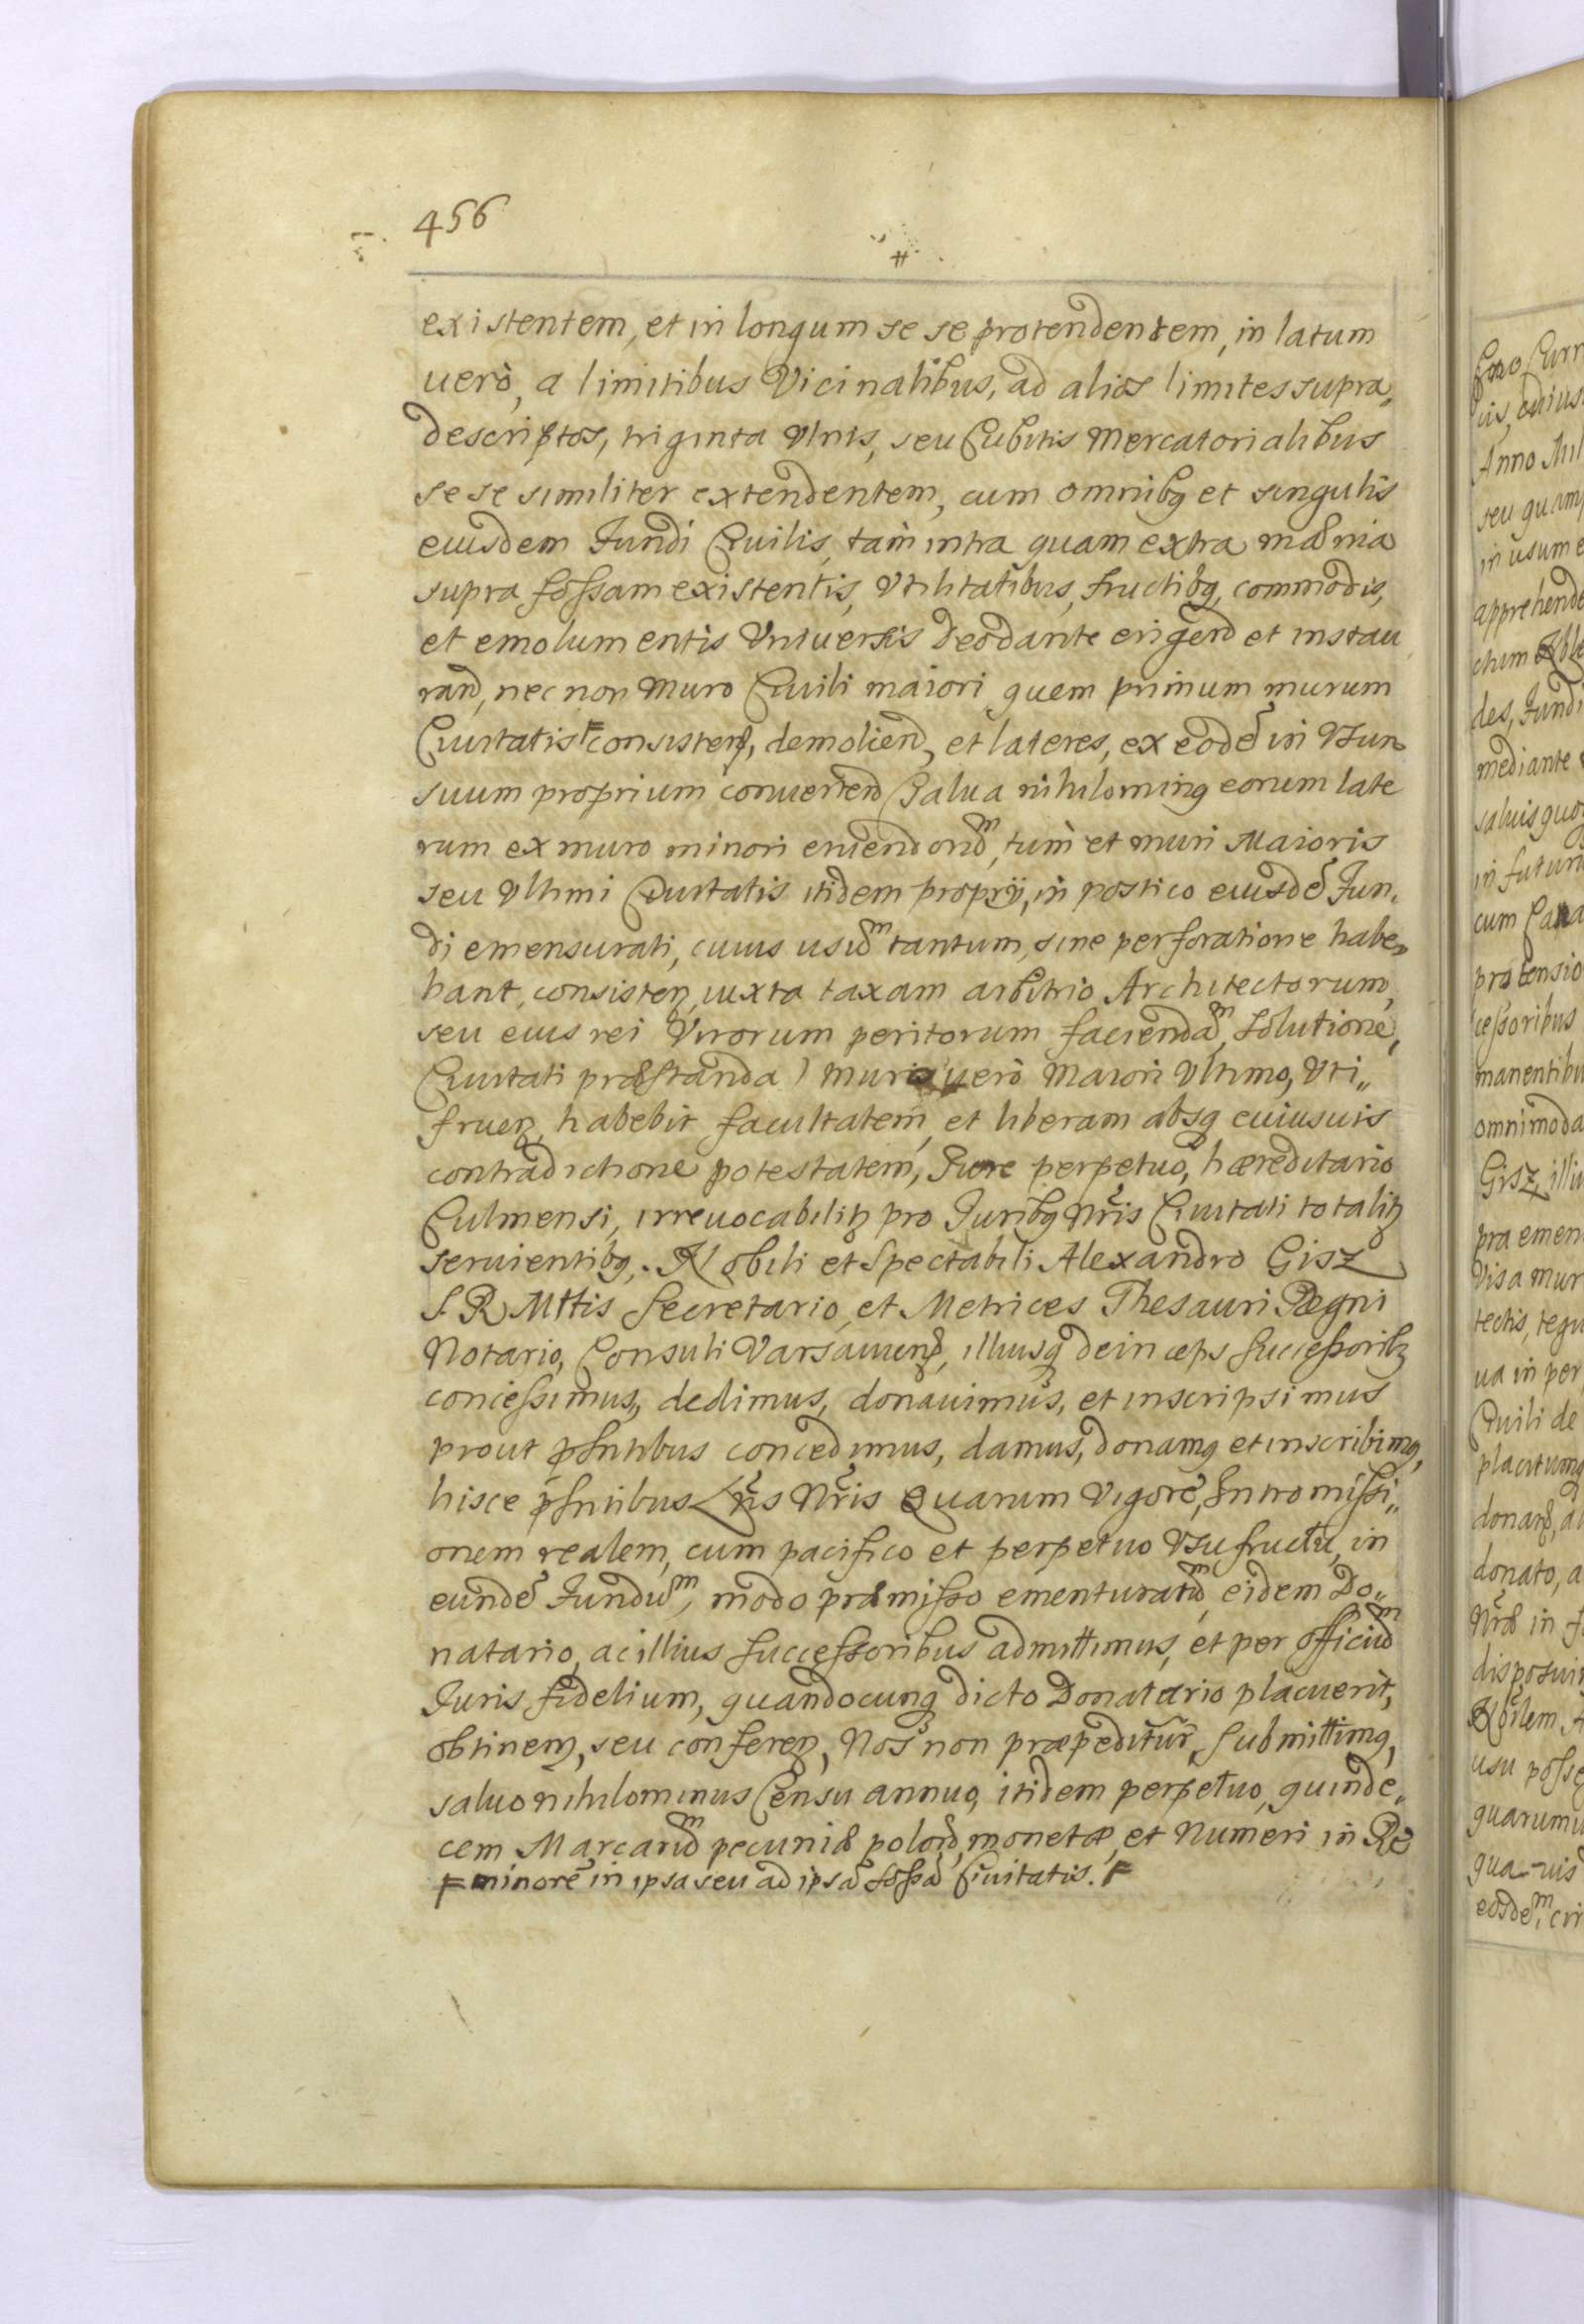 456
existentem, et in longum se se protendentem, in latum
uerò, a limitibus Vicinalibus, ad alios limites supra,
descriptos, triginta Vlnis, seu Cubitis Mercatorialibus
se se similiter extendentem, cum omnibq et singulis
eiusdem Fundi Ciuilis, tam intra quam extra mænia
supra fossam existentis, Vtilitatibus, fructibq, commodis,
et emolumentis Vniuersis Deo dante erigend et instau
rand, nec non Muro Ciuili maiori quem primum murum
Ciuitatis F consisten, demoliend, et lateres, ex eodē in Vsum
suum proprium conuertend (Salua nihilominq eorum late
rum ex muro minori eruendorūm, tum et muri Maioris
seu Vltimi Ciuitatis itidem proprij, in postico eiusdē Fun,
di emensurati, cuius usūm tantum, sine perforatione habe,
bant, consisten, iuxta taxam arbitrio Architectorum,
seu eius rei Virorum peritorum faciendām, solutione,
Ciuitati præstanda) Muri uerò Maiori Vltimo, Vti„
fruen, habebit facultatem, et liberam absq cuiusuis
contradictione potestatem, Iure perpetuo, hæreditario
Culmensi, irreuocabilit pro Juribq Nris Ciuitati totalit
seruientibq, Nobili et Spectabili Alexandro Gisz
S. R. Mttis Secretario, et Metrices Thesauri Regni
Notario, Consuli Varsauien, illiusq deinceps Successorib
concessimus, dedimus, donauimus, et inscripsimus
prout pntibus concedimus, damus, donamq et inscribimq,
hisce pntibus Lris Nris Quarum Vigore, Intromissi„
onem realem, cum pacifico et perpetuo Vsufructu, in
eundē Fundūm, modo præmisso ementuratūm, eidem Do„
natario, ac illius Successoribus admittimus, et per officiūm
Iuris fidelium, quandocunq dicto Donatario placuerit,
obtinen, seu conferen, Nos non præpeditur, Submittimq,
saluo nihilominus Censu annuo, itidem perpetuo, quinde„
cem Marcarūm pecuniæ polon, monetæ, et Numeri in Re
F minorē in ipsa seu ad ipsā fossā Ciuitatis. F